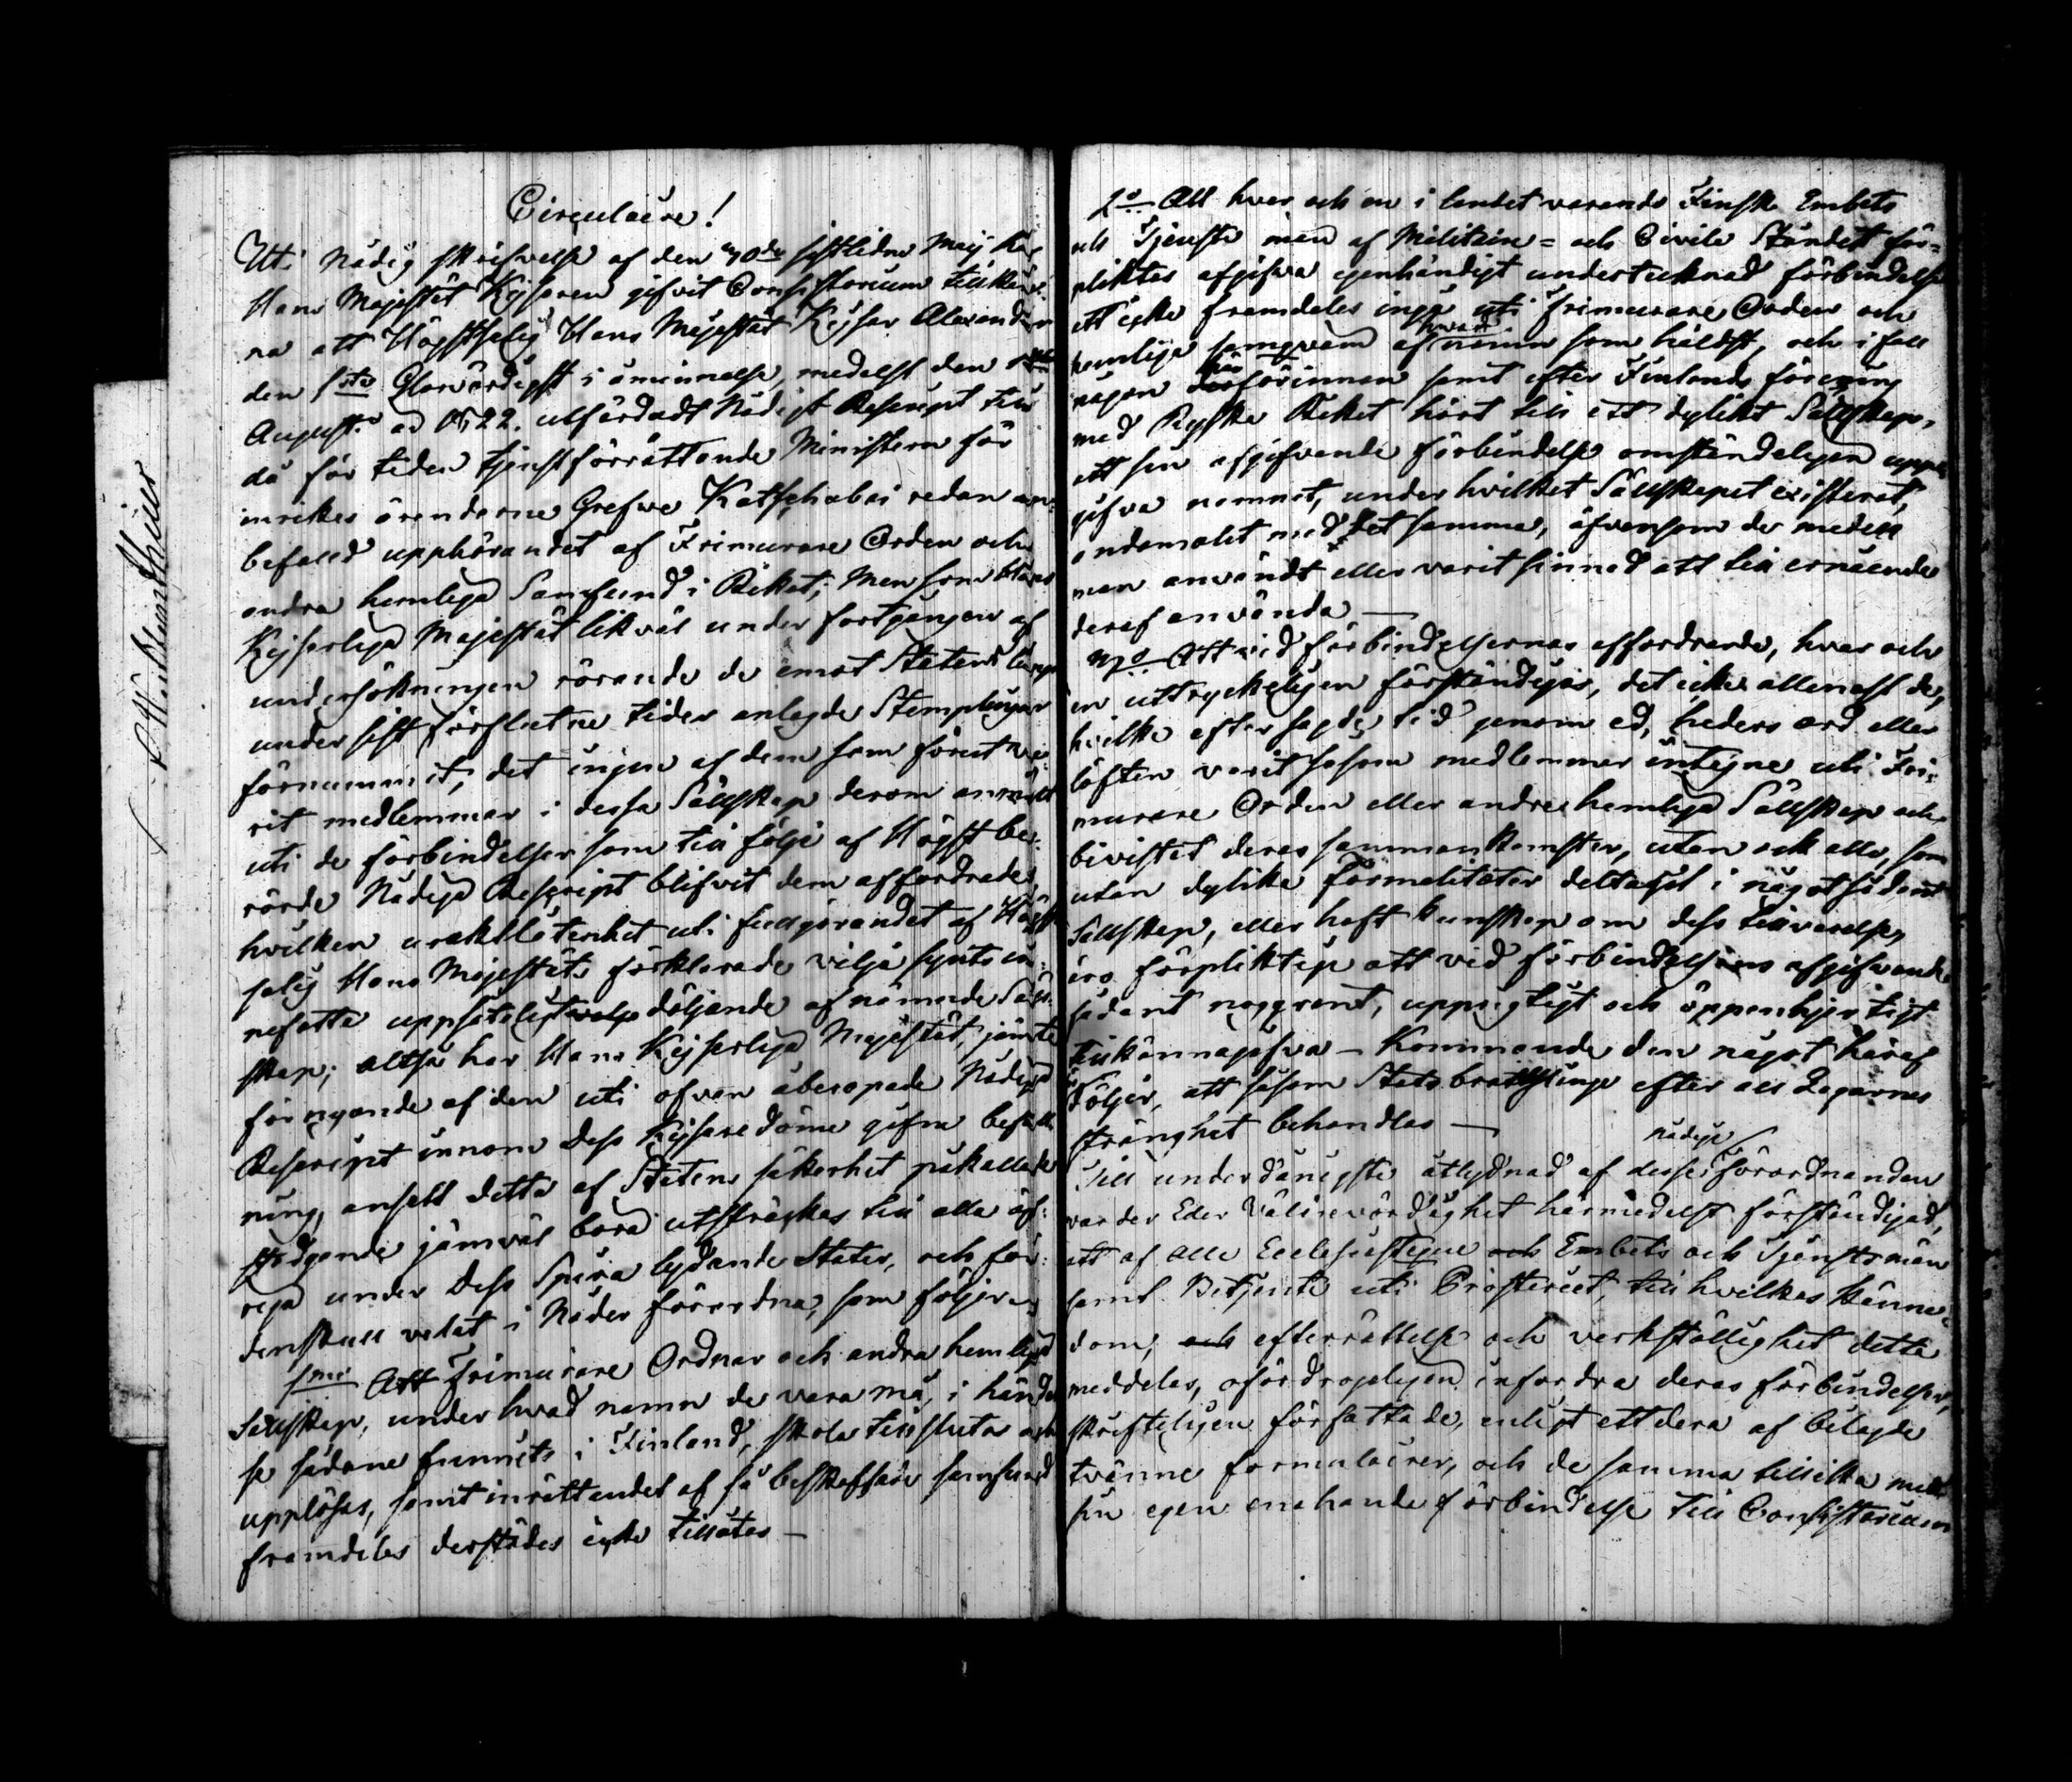 Circulaire!
Uti Nådig skrifvelse af den 30de sistledne Maij har
Hans Majestät Kejsaren gifvit Consistorium tillkän-
na att Högstsalig Hans Majestät Kejsar Alexander
den 1sta Glorvördigst i åminnelse, medelst den
Augusti ad 1822. utfärdadt Nådigt Rescript till
då för tiden tjenstförrättande Ministern för
inrikes ärenderne Grefve Kotschubei redan an-
befalld upphörandet af Frimurare Orden och
andra hemliga Samfund i Riket; Men som Hans
Kejserliga Majestät likväl under fortgången af
undersökningen rörande de emot Statens lugn
under sist förflutne tider anlagde Stemplingar
förnummit, det ingen af dem som förut va-
rit medlemmar i dessa Sällskap derom anmält
uti de förbindelser som till följe af Högstbe-
rörde Nådiga Rescript blifvit dem affordrade
hvilken uraktlåtenhet uti fullgörandet af Högst
salig Hans Majestäts förklarade vilja synts in-
nefatta uppsåteligt döljande af nämnde Säll-
skap; altså har Hans Kejserliga Majestät, jämte
förnyande af den uti ofvan åberopade Nådiga
Rescript innom Dess Kejsaredöme gifne befall-
ning, ansett detta af Statens säkerhet påkallade
stadgande jämväl böra utsträckas till alla öf-
riga under Dess Spira lydande Stater, och för
denskull velat i Nåder förordna, som följer
1mo Att Frimurare Ordnar och andra hemliga
Sällskap, under hvad namn de vara må, i händel-
se sådane funnits i Finland, skola tillslutas och
upplösas, samt inrättandet af så beskaffade samfund
framdeles derstädes icke tillåtas —
2o Att hvar och en i landet varande Finsk Embets
och Tjenste män af Militaire= och Civile Ståndet för-
pliktas afgifva egenhändigt undertecknad förbindelse
att icke framdeles ingå uti Frimurare Orden och
hemliga samqväm af hvad namn som hälst, och i fall
någon härförinnan samt efter Finlands förening
med Ryska Riket hört till ett dylikt Sällskap,
att sin afgifvande förbindelse omständeligen upp-
gifva namnet, under hvilket Sällskapet existerat,
ändamålet med det samma, äfvensom de medel
man användt eller varit sinnad att till ernående
deraf använda —
3o Att vid förbindelsernas affordrande, hvar och
en uttryckeligen förständigas, det icke allenast de,
hvilka efter sagde tid genom ed, heders ord eller
löften varit såsom medlemmar intagne uti Fri-
murare Orden eller andre hemliga Sällskap och
bivistat deras sammankomster, utan ock alla, som
utan dylika formaliteter deltagit i något sådant
Sällskap, eller haft kunskap om dess tillvarelse,
äro förpliktige att vid förbindelsens afgifvande
sådant noggrant, uppriktigt och öppenhjertigt
tillkännagifva — Kommande den något häraf
döljer, att såsom Statsbrottslinge efter all Lagarnes
stränghet behandlas —
Till underdånigste åtlydnad af desse nådige förordnanden
varder Eder Välärevördighet härmedelst förständigad,
att af alla Ecclesiastique och Embets och Tjenstemän
samt Betjente uti Prosteriet, till hvilkas känne-
dom, och efterrättelse och verkställighet detta
meddelas, ofördrögeligen infordra deras förbindelser,
skrifteligen författade, enligt ettdera af bilagde
tvänne formulairer, och de samma tillika med
sin egen enahanda förbindelse till Consistorium